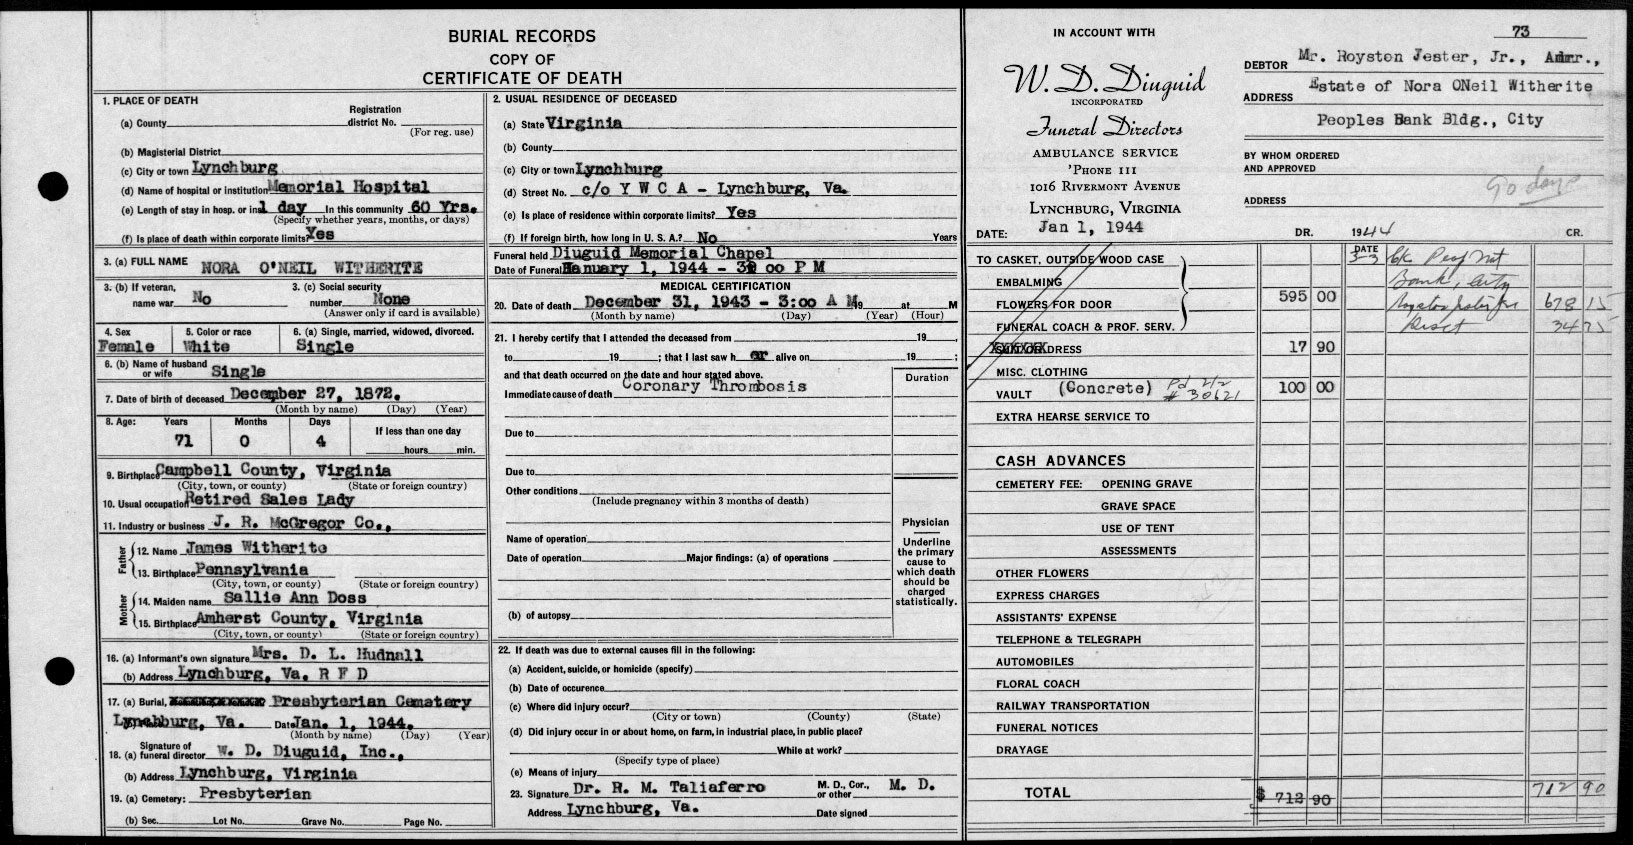 BURIAL RECORDS
COPY OF
CERTIFICATE OF DEATH
1. PLACE OF DEATH
(a) County
Registration district No.
(For reg. use)
(b) Magisterial District
(c) City or town Lynchburg
(d) Name of hospital or institution Memorial Hospital
(e) Length of stay in hosp. or in 1 day In this community 60 Yrs.
(Specify whether years, months, or days)
(f) Is place of death within corporate limits? Yes
3. (a) FULL NAME NORA O'NEIL WITHERITE
3. (b) If veteran, name war No
3. (c) Social security number None
(Answer only if card is available)
4. Sex Female
5. Color or race White
6. (a) Single, married, widowed, divorced. Single
6. (b) Name of husband or wife Single
7. Date of birth of deceased December 27, 1872.
(Month by name) (Day) (Year)
8. Age: Years Months Days If less than one day
71 0 4 hours min.
9. Birthplace Campbell County, Virginia
(City, town, or county) (State or foreign country)
10. Usual occupation Retired Sales Lady
11. Industry or business J. R. McGregor Co.,
Father
12. Name James Witherite
13. Birthplace Pennsylvania
(City, town, or county) (State or foreign country)
Mother
14. Maiden name Sallie Ann Doss
15. Birthplace Amherst County, Virginia
(City, town, or county) (State or foreign country)
16. (a) Informant's own signature Mrs. D. L. Hudnall
(b) Address Lynchburg, Va. R F D
17. (a) Burial, Presbyterian Cemetery
Lynchburg, Va. Date Jan. 1, 1944.
(Month by name) (Day) (Year)
18. (a) Signature of funeral director W. D. Diuguid, Inc.,
(b) Address Lynchburg, Virginia
19. (a) Cemetery: Presbyterian
(b) Sec. Lot No. Grave No. Page No.
2. USUAL RESIDENCE OF DECEASED
(a) State Virginia
(b) County
(c) City or town Lynchburg
(d) Street No. c/o Y W C A - Lynchburg, Va.
(e) Is place of residence within corporate limits? Yes
(f) If foreign birth, how long in U. S. A.? No Years
Funeral held Diuguid Memorial Chapel
Date of Funeral January 1, 1944 - 3: 00 P M
MEDICAL CERTIFICATION
20. Date of death December 31, 1943 - 3:00 A M. 19 at M
(Month by name) (Day) (Year) (Hour)
21. I hereby certify that I attended the deceased from 19 ,
to 19 ; that I last saw h er alive on 19 ;
and that death occurred on the date and hour stated above.
Duration
Immediate cause of death Coronary Thrombosis
Due to
Due to
Other conditions
(Include pregnancy within 3 months of death)
Name of operation
Date of operation Major findings: (a) of operations
(b) of autopsy
Physician
Underline the primary cause to which death should be charged statistically.
22. If death was due to external causes fill in the following:
(a) Accident, suicide, or homicide (specify)
(b) Date of occurence
(c) Where did injury occur?
(City or town) (County) (State)
(d) Did injury occur in or about home, on farm, in industrial place, in public place?
While at work?
(Specify type of place)
(e) Means of injury
23. Signature Dr. R. M. Taliaferro M. D., Cor., or other M. D.
Address Lynchburg, Va. Date signed
IN ACCOUNT WITH
W. D. Diuguid
INCORPORATED
Funeral Directors
AMBULANCE SERVICE
'PHONE 111
1016 RIVERMONT AVENUE
LYNCHBURG, VIRGINIA
DATE: Jan 1, 1944
73
DEBTOR Mr. Royston Jester, Jr., Admr.,
ADDRESS Estate of Nora ONeil Witherite
Peoples Bank Bldg., City
BY WHOM ORDERED AND APPROVED
90 days
ADDRESS
DR. 1944 CR.
DATE
TO CASKET, OUTSIDE WOOD CASE
EMBALMING
FLOWERS FOR DOOR
FUNERAL COACH & PROF. SERV.
595 00
3-3 Ck Peop Nat
Bank, City
678 15
34 75
SUIT OR DRESS 17 90
MISC. CLOTHING
VAULT (Concrete) Pd 2/2 # 30621 100 00
EXTRA HEARSE SERVICE TO
CASH ADVANCES
CEMETERY FEE: OPENING GRAVE
GRAVE SPACE
USE OF TENT
ASSESSMENTS
OTHER FLOWERS
EXPRESS CHARGES
ASSISTANTS' EXPENSE
TELEPHONE & TELEGRAPH
AUTOMOBILES
FLORAL COACH
RAILWAY TRANSPORTATION
FUNERAL NOTICES
DRAYAGE
TOTAL $ 712 90 712 90